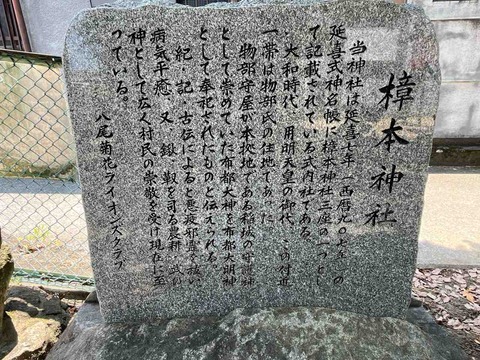 樟本神社
当神社は延喜七年(西暦九〇七年)の
延喜式神名帳に樟本神社三座の一つとし
て記載されている式内社である。
大和時代、用明天皇の御代、この付近
一帯は物部氏の住地であった。
物部守屋が本拠地である稲城の守護神
として崇めていた布都大神を布都大明神
として奉祀されたものと伝えられる。
紀、記、古伝によると悪疫邪霊を祓い、
病気平癒、又、鍬、
神として広く村民の崇敬を受け現在に至
っている。
八尾菊花ライオンズクラブ